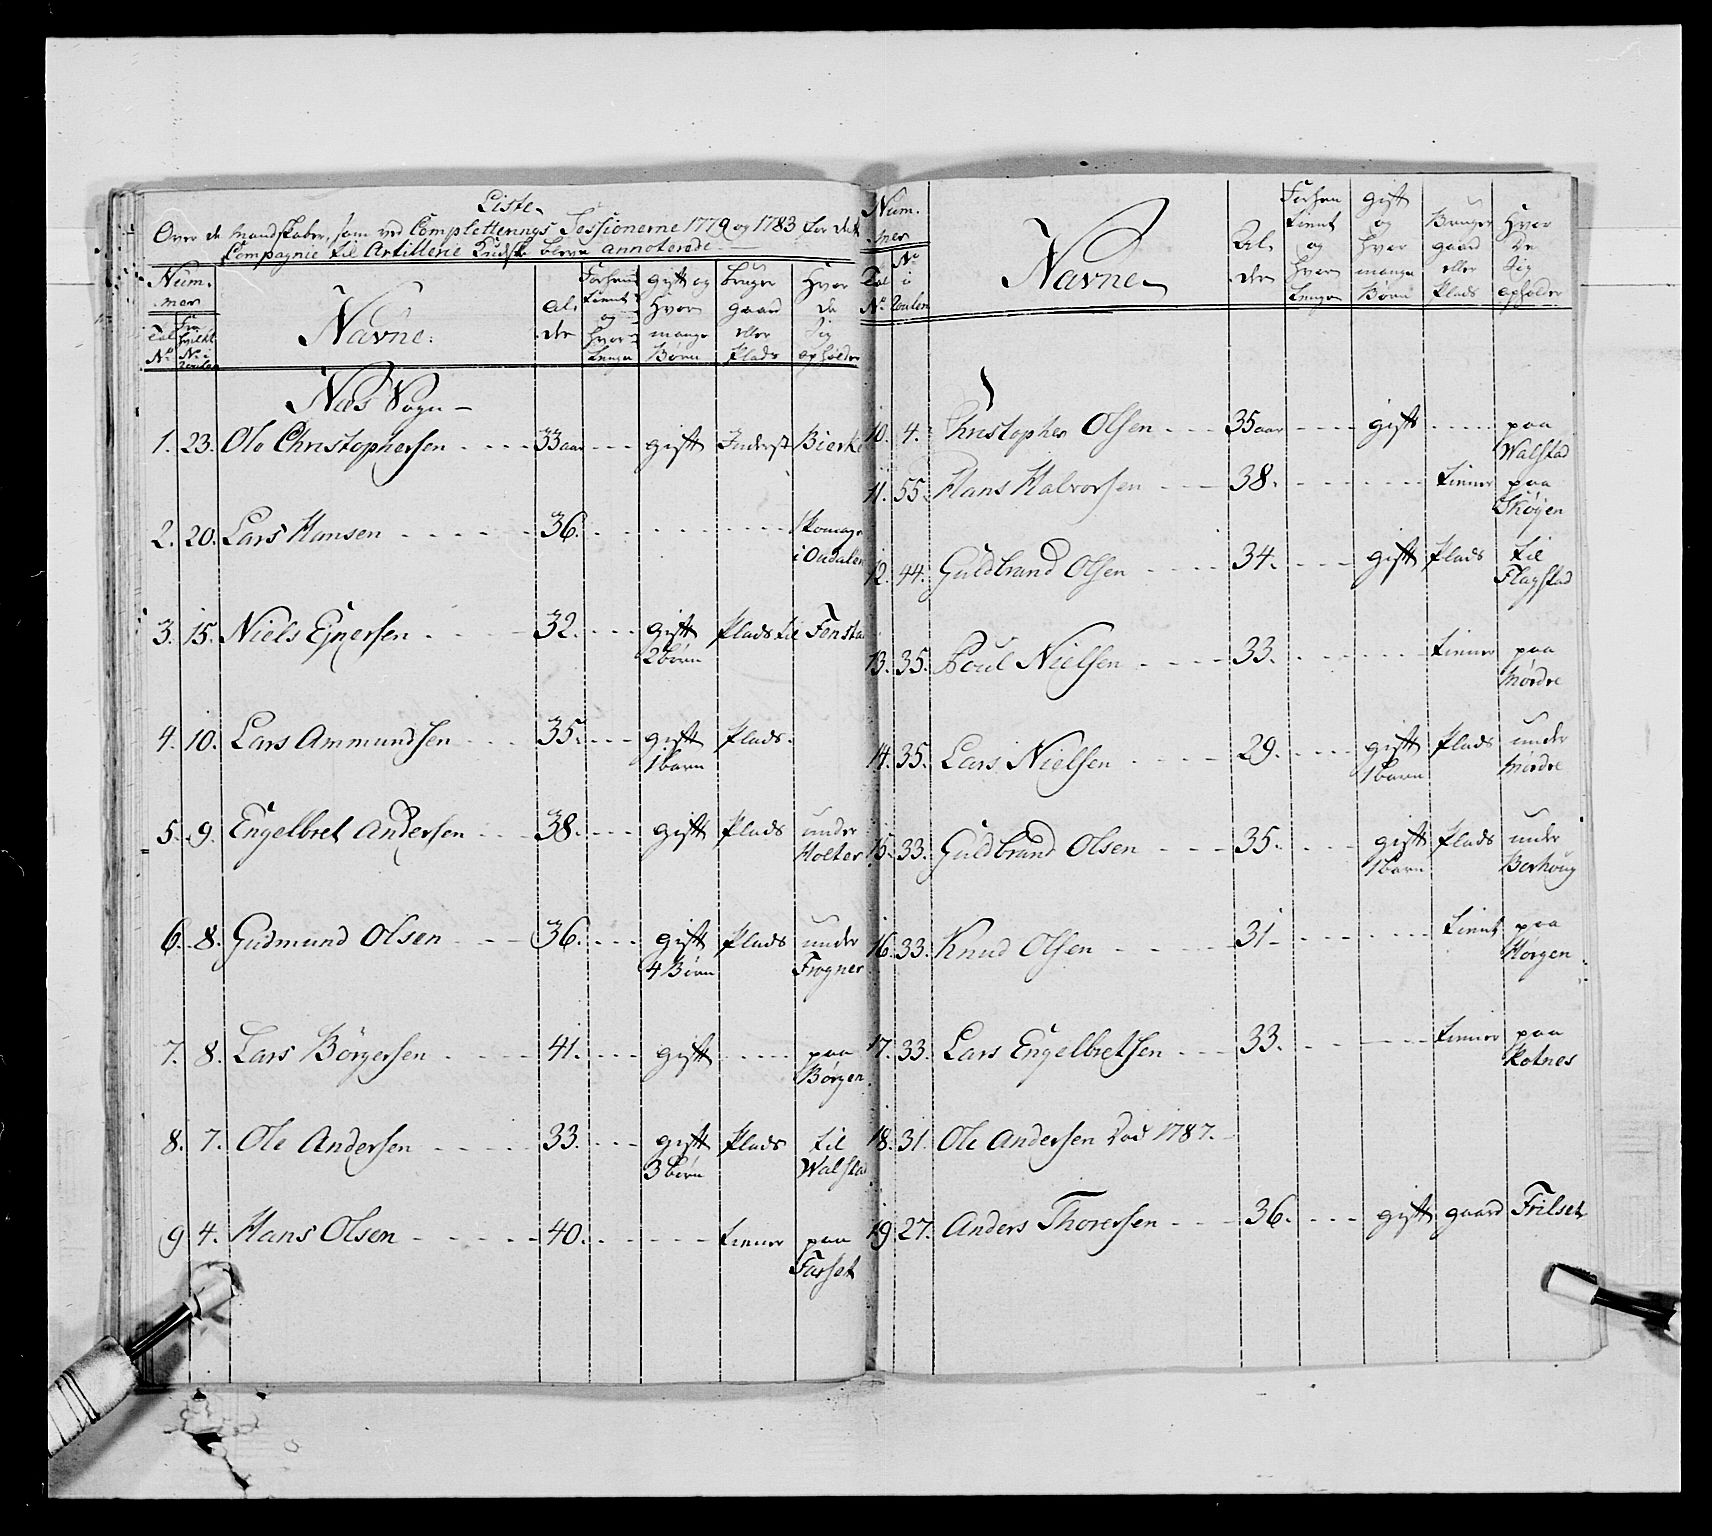 Liste
Over de Mandskaber, som ved Completterings Sessionerne 1779 og 1783 for dette
Compagnie til Artillerie Kudske bleve annoterede
Num-
mer
Navne:
Al-
der
Forhen
tient
og
hvor
længe
gift og
hvor
mange
Børn
bruger
gaard
eller
Plads
Hvor
de
sig
opholder
Tal
No
No i
Roulen
Næs Sogn
1. 23. Ole Christophersen 33 aar gift Inderst Bierke
2. 20. Lars Hansen 36. Skomager
i Oudalen
3. 15. Niels Ejnersen 32. gift Plads til Fensta
2 børn
4. 10. Lars Ammundsen 35. gift Plads.
1 barn
5. 9. Engelbret Andersen 38. gift Plads under
Holter
6. 8. Gudmund Olsen 36. gift Plads under
4 Børn Frogner
7. 8. Lars Börgersen 41. gift paa
Börgen
8. 7. Ole Andersen 33. gift Plads til
3 børn Walsta
9 4. Hans Olsen 40. tiener paa
Farset
Num-
mer
Tal
No
No
i
Roulen
Navne
Al-
der
Forhen
tient
og
hvor
længe
gift
og
hvor
mange
Børn
Bruger
gaard
eller
Plads
Hvor
De
sig
opholder
10. 4. Christopher Olsen 35 aar gift paa
Walstad
11. 55. Hans Halvorsen 38. tiener paa
Skøyen
12. 44. Guldbrand Olsen 34. gift Plads til
Flagstad
13. 35. Poul Nielsen 33. tiener paa
Mørdre
14. 35. Lars Nielsen 29. gift Plads under
1 barn Mørdre
15. 33. Guldbrand Olsen 35. gift Plads under
1 barn Berhoug
16. 33. Knud Olsen 31 tient paa
Hørgen
17. 33. Lars Engelbretsen 33. tiener paa
Skotnes
18. 31. Ole Andersen Död 1787.
19 27. Anders Thoresen 36. gift gaard Frilset